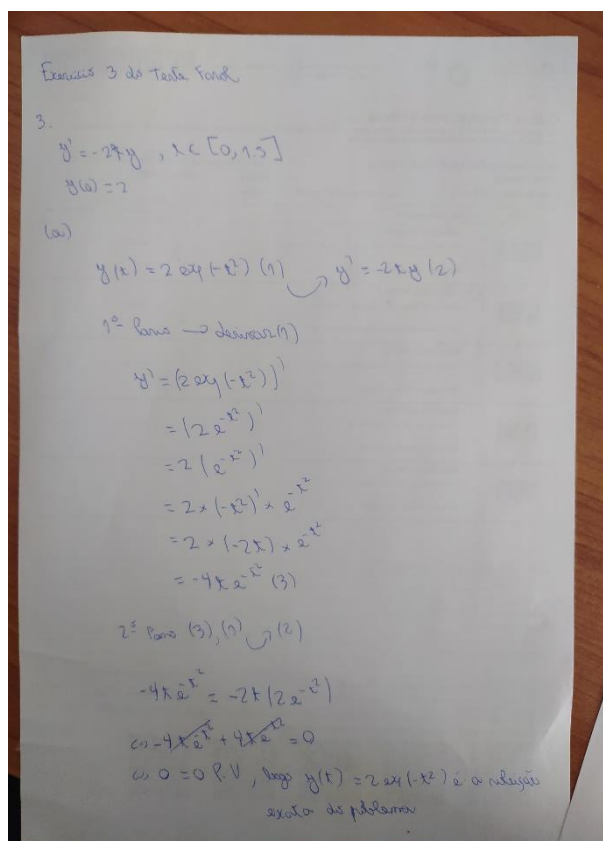 Exercício 3 do Teste Farol
3.
y' = -2ty , t ∈ [0, 1.5]
y(0) = 2
(a)
y(t) = 2 exp(-t²) (1) ⤻ y' = -2ty (2)
1º Passo → derivar (1)
y' = (2 exp(-t²))'
= (2e^{-t²})'
= 2(e^{-t²})'
= 2 × (-t²)' × e^{-t²}
= 2 × (-2t) × e^{-t²}
= -4t e^{-t²} (3)
2º Passo (3), (1) ⤻ (2)
-4t e^{-t²} = -2t(2e^{-t²})
(=) -4t e^{-t²} + 4t e^{-t²} = 0
(=) 0 = 0 P.V, logo y(t) = 2 exp(-t²) é a solução
exata do problema